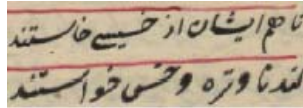 تا هم ایشان از خسیسی خاستند
تند تا و تره و خس خواستند